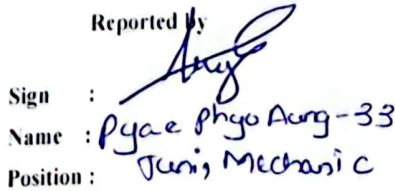 Reported by
Sign :
Name : Pyae Phyo Aung-33
Position : Mechanic